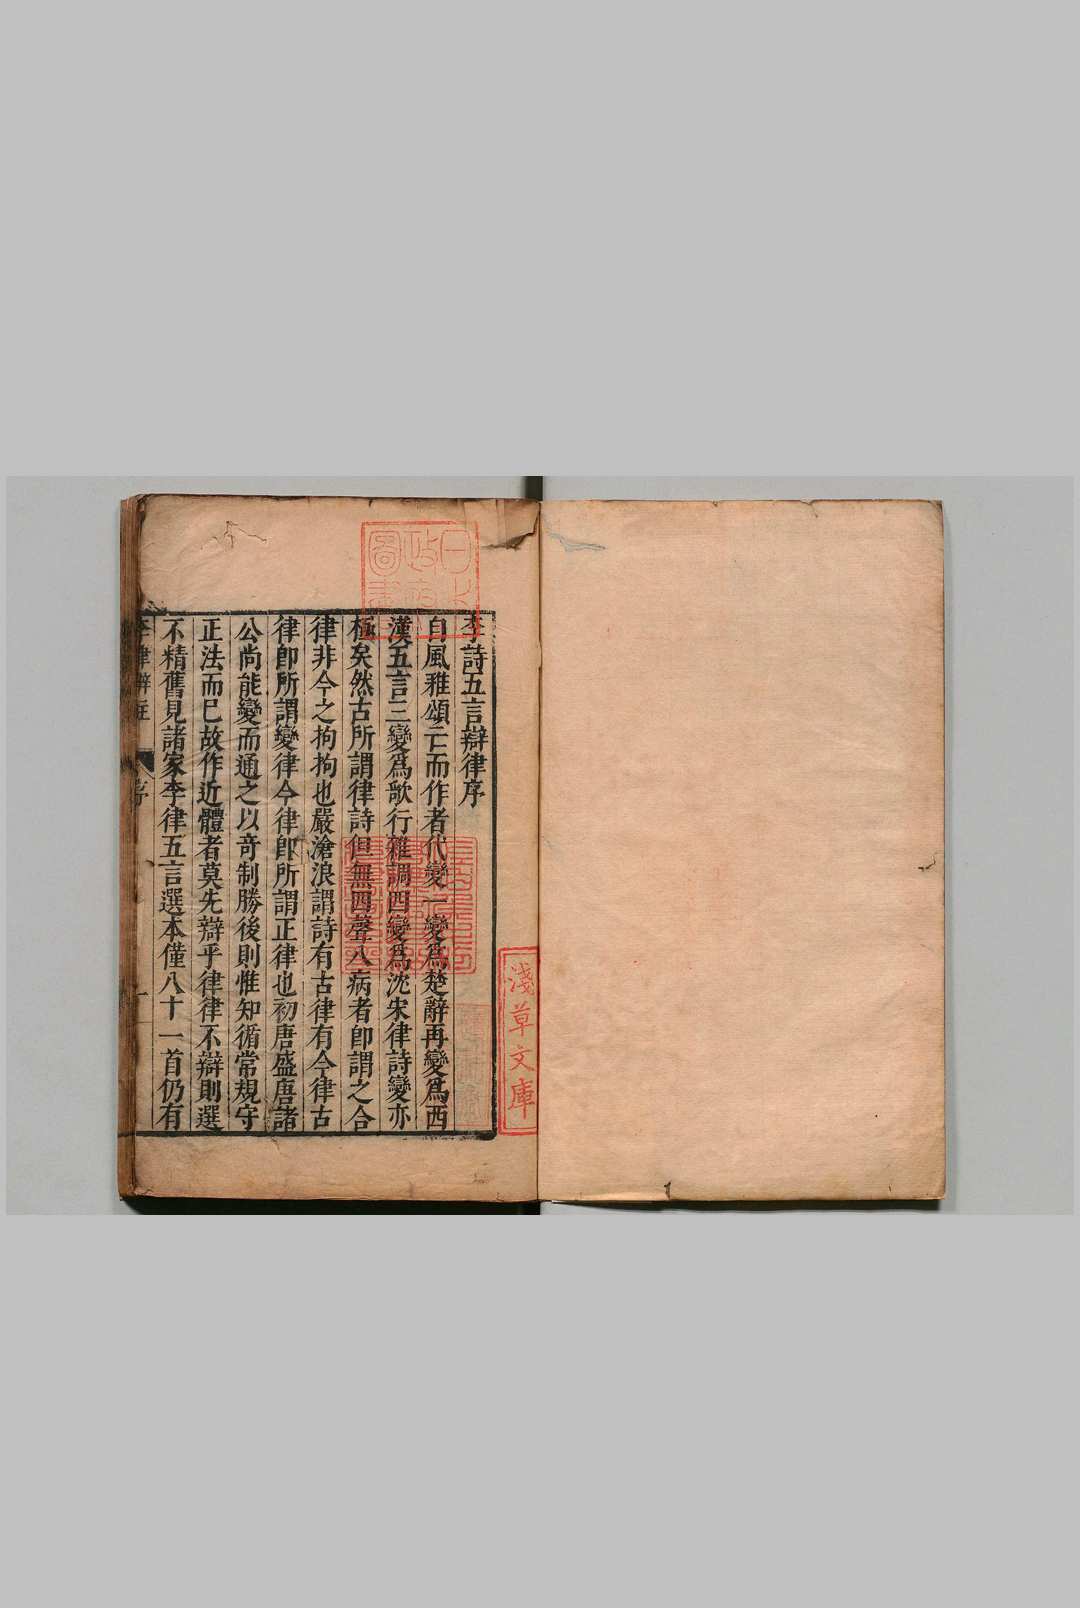 李詩五言辯律序
自風雅頌亡而作者代變一變爲楚辭再變爲西
漢五言三變爲歌行雜調四變爲沈宋律詩變亦
極矣然古所謂律詩但無四聲八病者即謂之合
律非今之拘拘也嚴滄浪謂詩有古律有今律古
律即所謂變律今律即所謂正律也初唐盛唐諸
公尚能變而通之以奇制勝後則惟知循常規守
正法而已故作近體者莫先辯乎律律不辯則選
不精舊見諸家李律五言選本僅八十一首仍有
李律辯註
序
一
日本政府圖書
淺草文庫